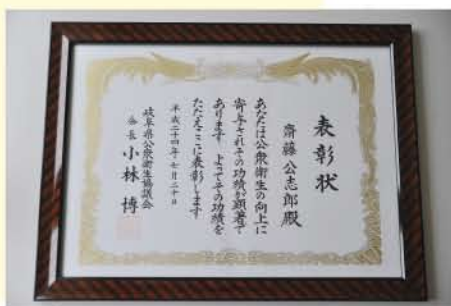 表彰状
齋藤公志郎殿
あなたは公衆衛生の向上に
寄与されその功績が顕著で
あります よってその功績を
たたえここに表彰します
平成二十四年七月二十日
岐阜県公衆衛生協議会
会長 小林博